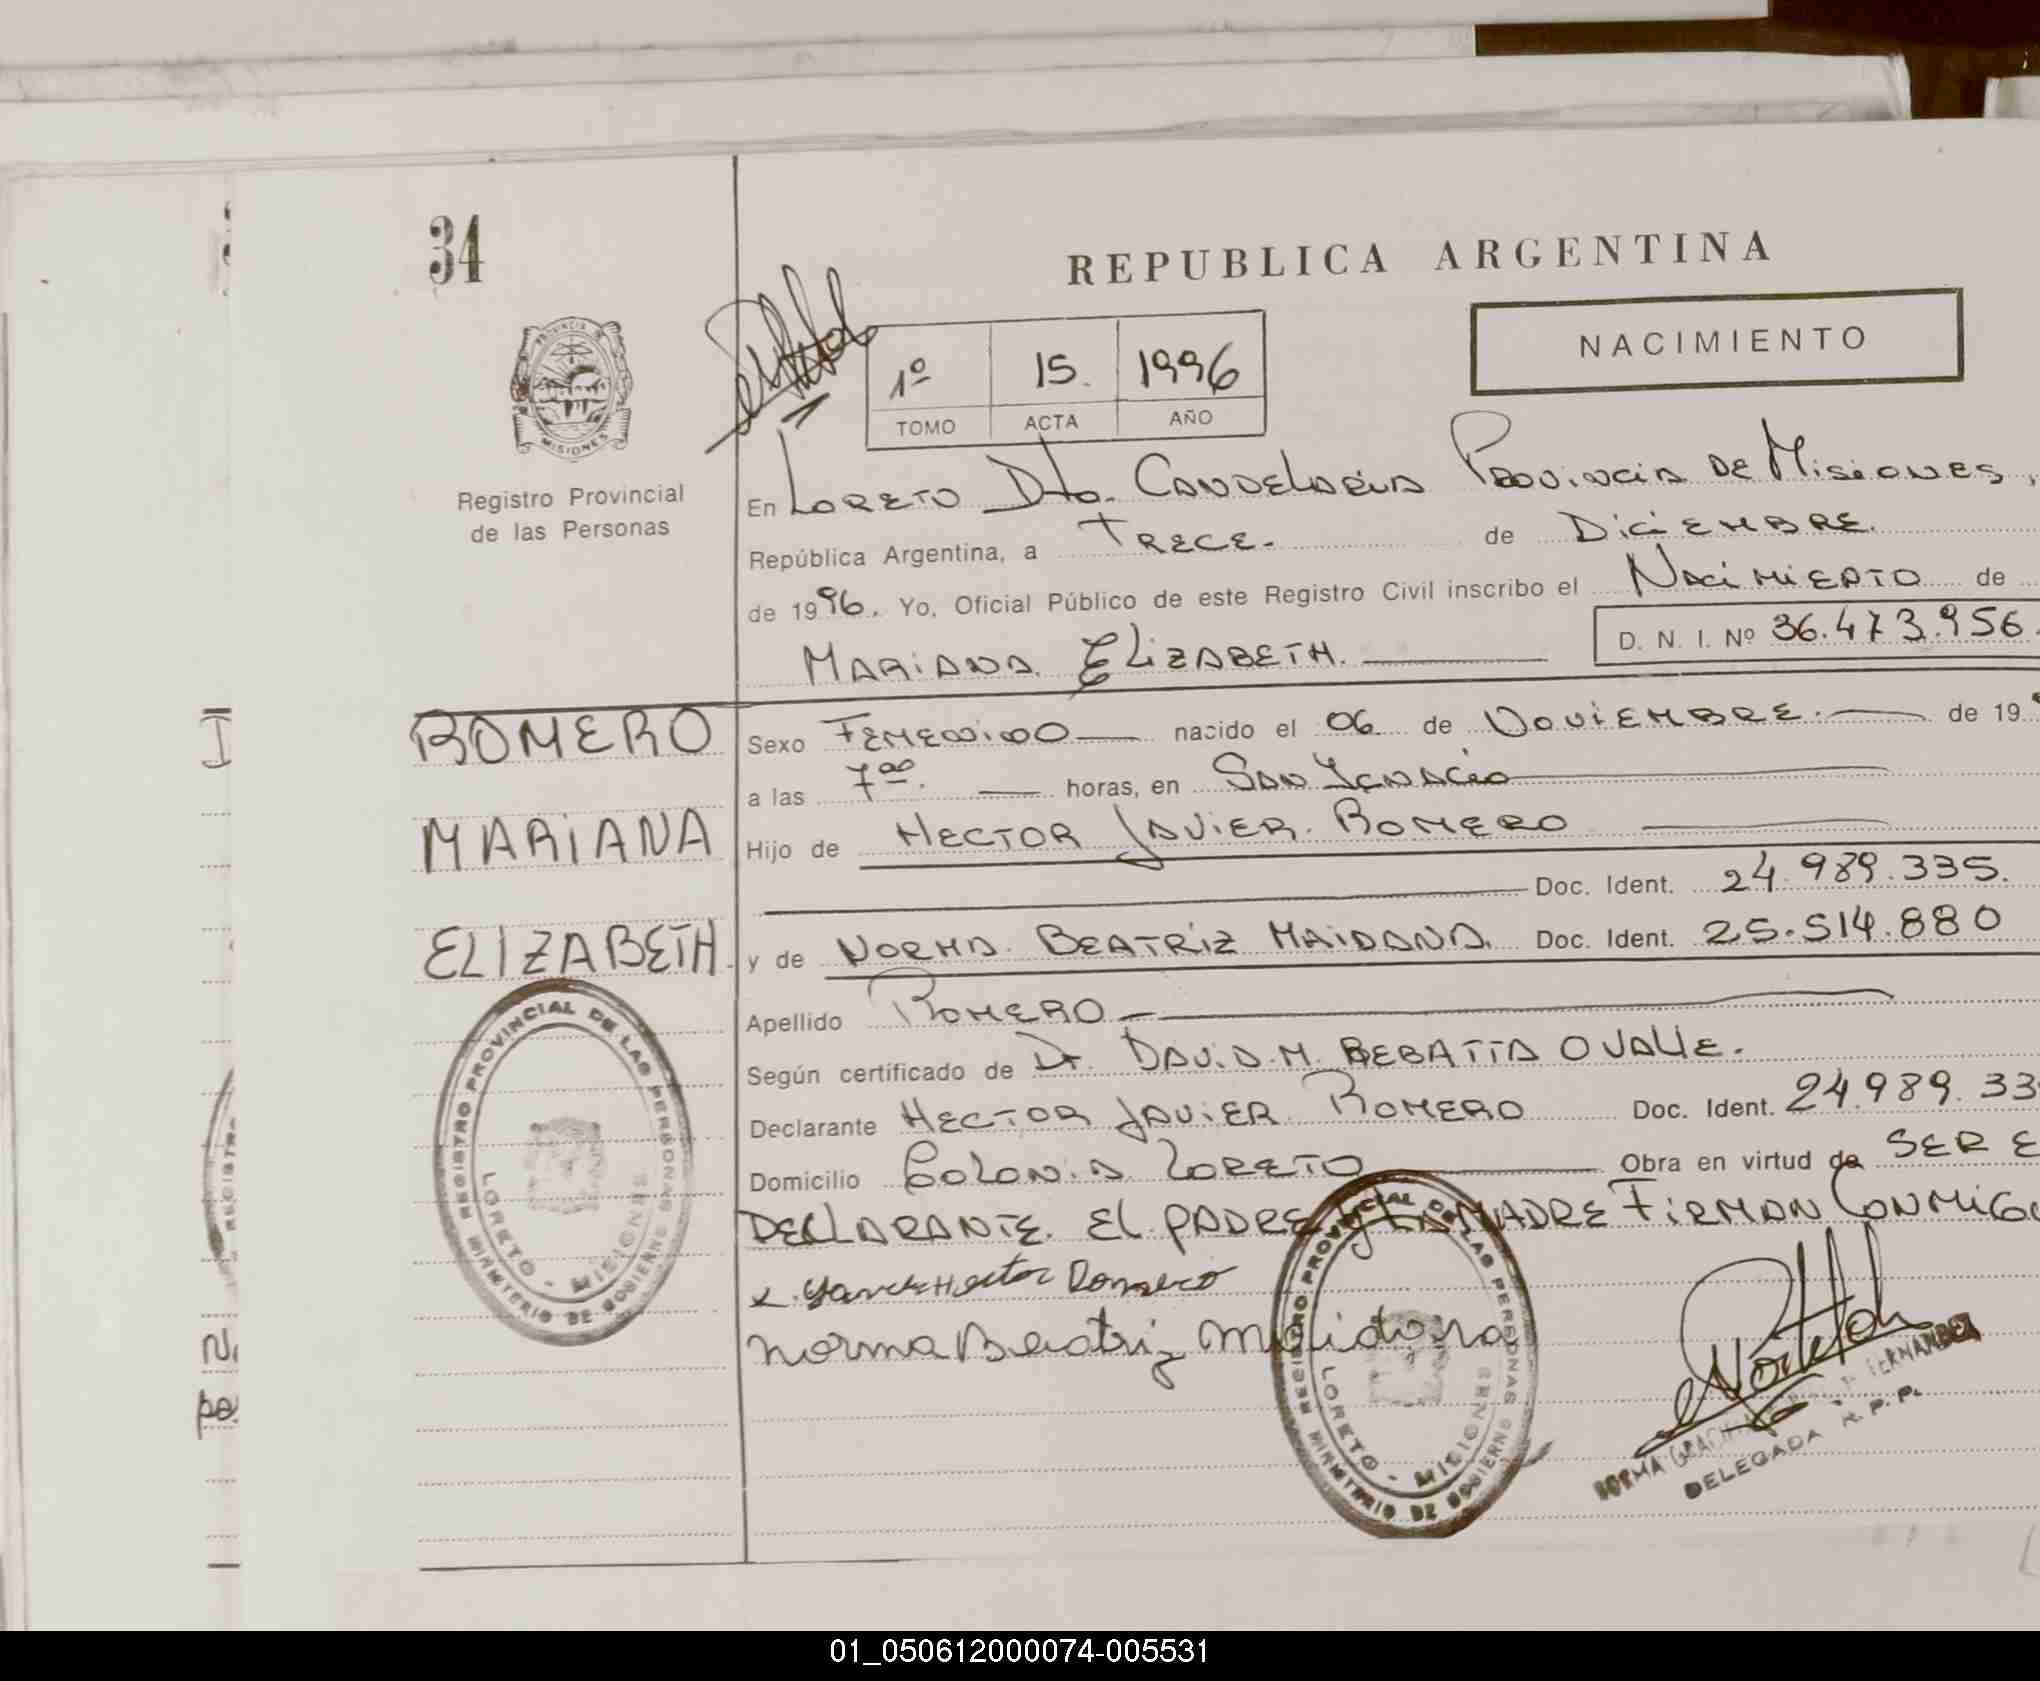 34
REPUBLICA ARGENTINA
NACIMIENTO
1º 15. 1996
TOMO ACTA AÑO
PROVINCIA DE
MISIONES
Registro Provincial
de las Personas
En LORETO Dto. CANDELARIA PROVINCIA DE MISIONES,
República Argentina, a TRECE. de DICIEMBRE.
de 1996. Yo, Oficial Público de este Registro Civil inscribo el NACIMIENTO de
D. N. I. Nº 36.473.956.
MARIANA ELIZABETH.
ROMERO
MARIANA
ELIZABETH.
Sexo FEMENINO nacido el 06 de NOVIEMBRE. de 19
a las 7ºº. horas, en SAN IGNACIO
Hijo de HECTOR JAVIER. ROMERO
Doc. Ident. 24.989.335.
y de NORMA. BEATRIZ MAIDANA. Doc. Ident. 25.514.880
Apellido ROMERO
Según certificado de Dr. DAVID.M. BEBATTA OVALLE.
Declarante HECTOR JAVIER ROMERO Doc. Ident. 24.989.33
Domicilio COLONIA LORETO Obra en virtud de SER E
DECLARANTE. EL PADRE Y LA MADRE FIRMAN CONMIGO
Hector Romero
Norma Beatriz Maidana
REGISTRO PROVINCIAL DE LAS PERSONAS
MINISTERIO DE GOBIERNO
LORETO - MISIONES
REGISTRO PROVINCIAL DE LAS PERSONAS
MINISTERIO DE GOBIERNO
LORETO - MISIONES
NORMA FERNANDEZ
DELEGADA R. P. P.
01_050612000074-005531